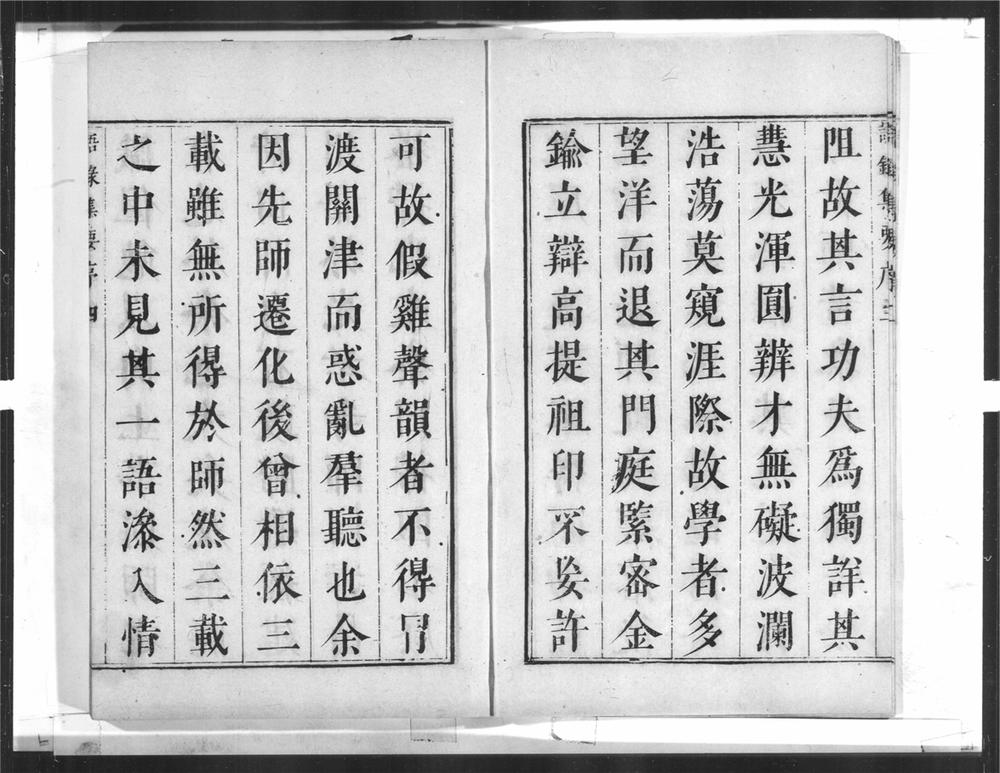 語錄集要序 三
阻故其言功夫爲獨詳其
慧光渾圓辨才無礙波瀾
浩蕩莫窺涯際故學者多
望洋而退其門庭緊密金
鍮立辯高提祖印不妄許
可故假雞聲韻者不得冐
渡關津而惑亂羣聽也余
因先師遷化後曾相依三
載雖無所得於師然三載
之中未見其一語滲入情
語錄集要序 四